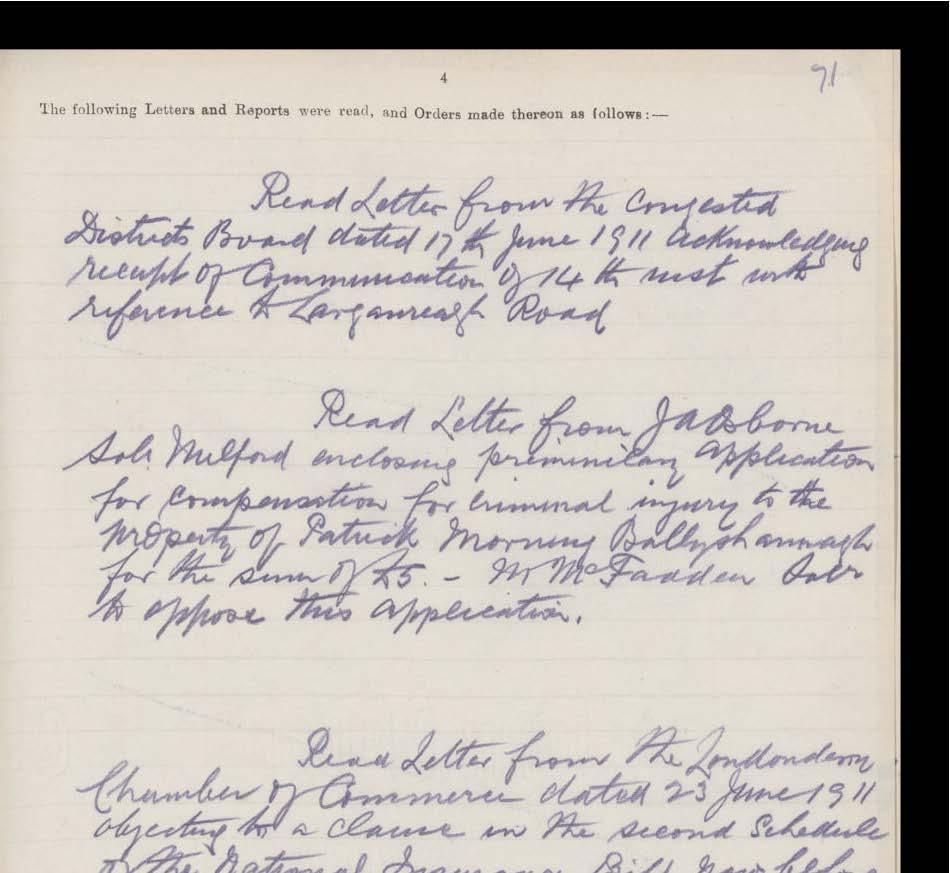 4
91
The following Letters and Reports were read, and Orders made thereon as follows:—
Read Letter from the Congested
Districts Board dated 17th June 1911 acknowledging
receipt of Communication of 14th inst with
reference to Larganreagh Road
Read Letter from JA Osborne
Solr Milford enclosing preminilary application
for compensation for criminal injury to the
property of Patrick Morning Ballyshannagh
for the sum of £5. - Mr McFadden Solr
to oppose this application.
Read Letter from the Londonderry
Chamber of Commerce dated 23 June 1911
objecting to a clause in the second Schedule
of the National Insurance Bill now before